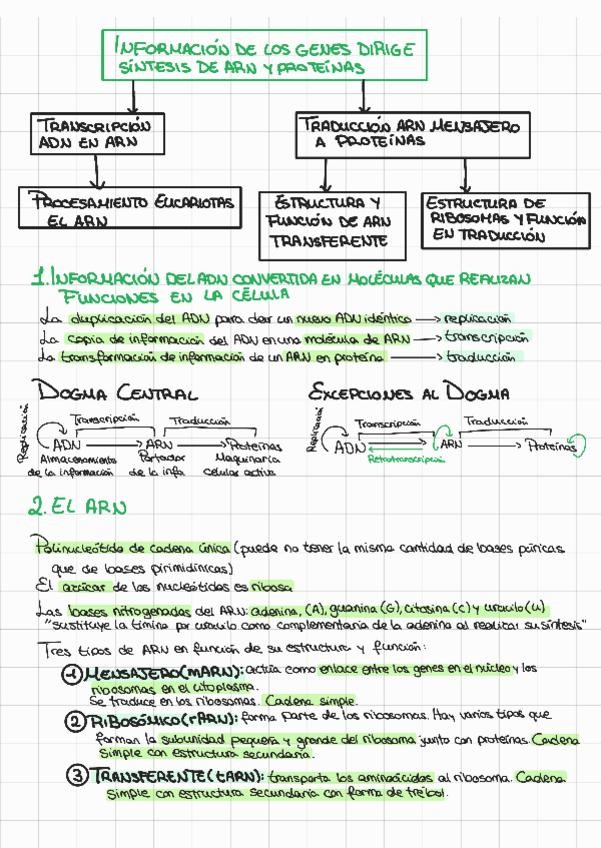 INFORMACIÓN DE LOS GENES DIRIGE
SÍNTESIS DE ARN Y PROTEÍNAS
TRANSCRIPCIÓN
ADN EN ARN
TRADUCCIÓN ARN MENSAJERO
A PROTEÍNAS
PROCESAMIENTO EUCARIOTAS
EL ARN
ESTRUCTURA Y
FUNCIÓN DE ARN
TRANSFERENTE
ESTRUCTURA DE
RIBOSOMAS Y FUNCIÓN
EN TRADUCCIÓN
1. INFORMACIÓN DEL ADN CONVERTIDA EN MOLÉCULAS QUE REALIZAN
FUNCIONES EN LA CÉLULA
La duplicación del ADN para dar un nuevo ADN idéntico → replicación
La copia de información del ADN en una molécula de ARN → transcripción
La transformación de información de un ARN en proteína → traducción
DOGMA CENTRAL
Replicación
Transcripción Traducción
ADN → ARN → Proteínas
Almacenamiento Portador Maquinaria
de la información de la info celular activa
EXCEPCIONES AL DOGMA
Replicación
Transcripción Traducción
ADN → ARN → Proteínas
Retrotranscripción
2. EL ARN
Polinucleótido de cadena única (puede no tener la misma cantidad de bases púricas
que de bases pirimidínicas)
El azúcar de los nucleótidos es ribosa
Las bases nitrogenadas del ARN: adenina, (A), guanina (G), citosina (C) y uracilo (U)
"sustituye la timina por uracilo como complementaria de la adenina al realizar su síntesis"
Tres tipos de ARN en función de su estructura y función:
1 MENSAJERO (mARN): actúa como enlace entre los genes en el núcleo y los
ribosomas en el citoplasma.
Se traduce en los ribosomas. Cadena simple.
2 RIBOSÓMICO (rARN): forma parte de los ribosomas. Hay varios tipos que
forman la subunidad pequeña y grande del ribosoma junto con proteínas. Cadena
simple con estructura secundaria.
3 TRANSFERENTE (tARN): transporta los aminoácidos al ribosoma. Cadena
simple con estructura secundaria con forma de trébol.